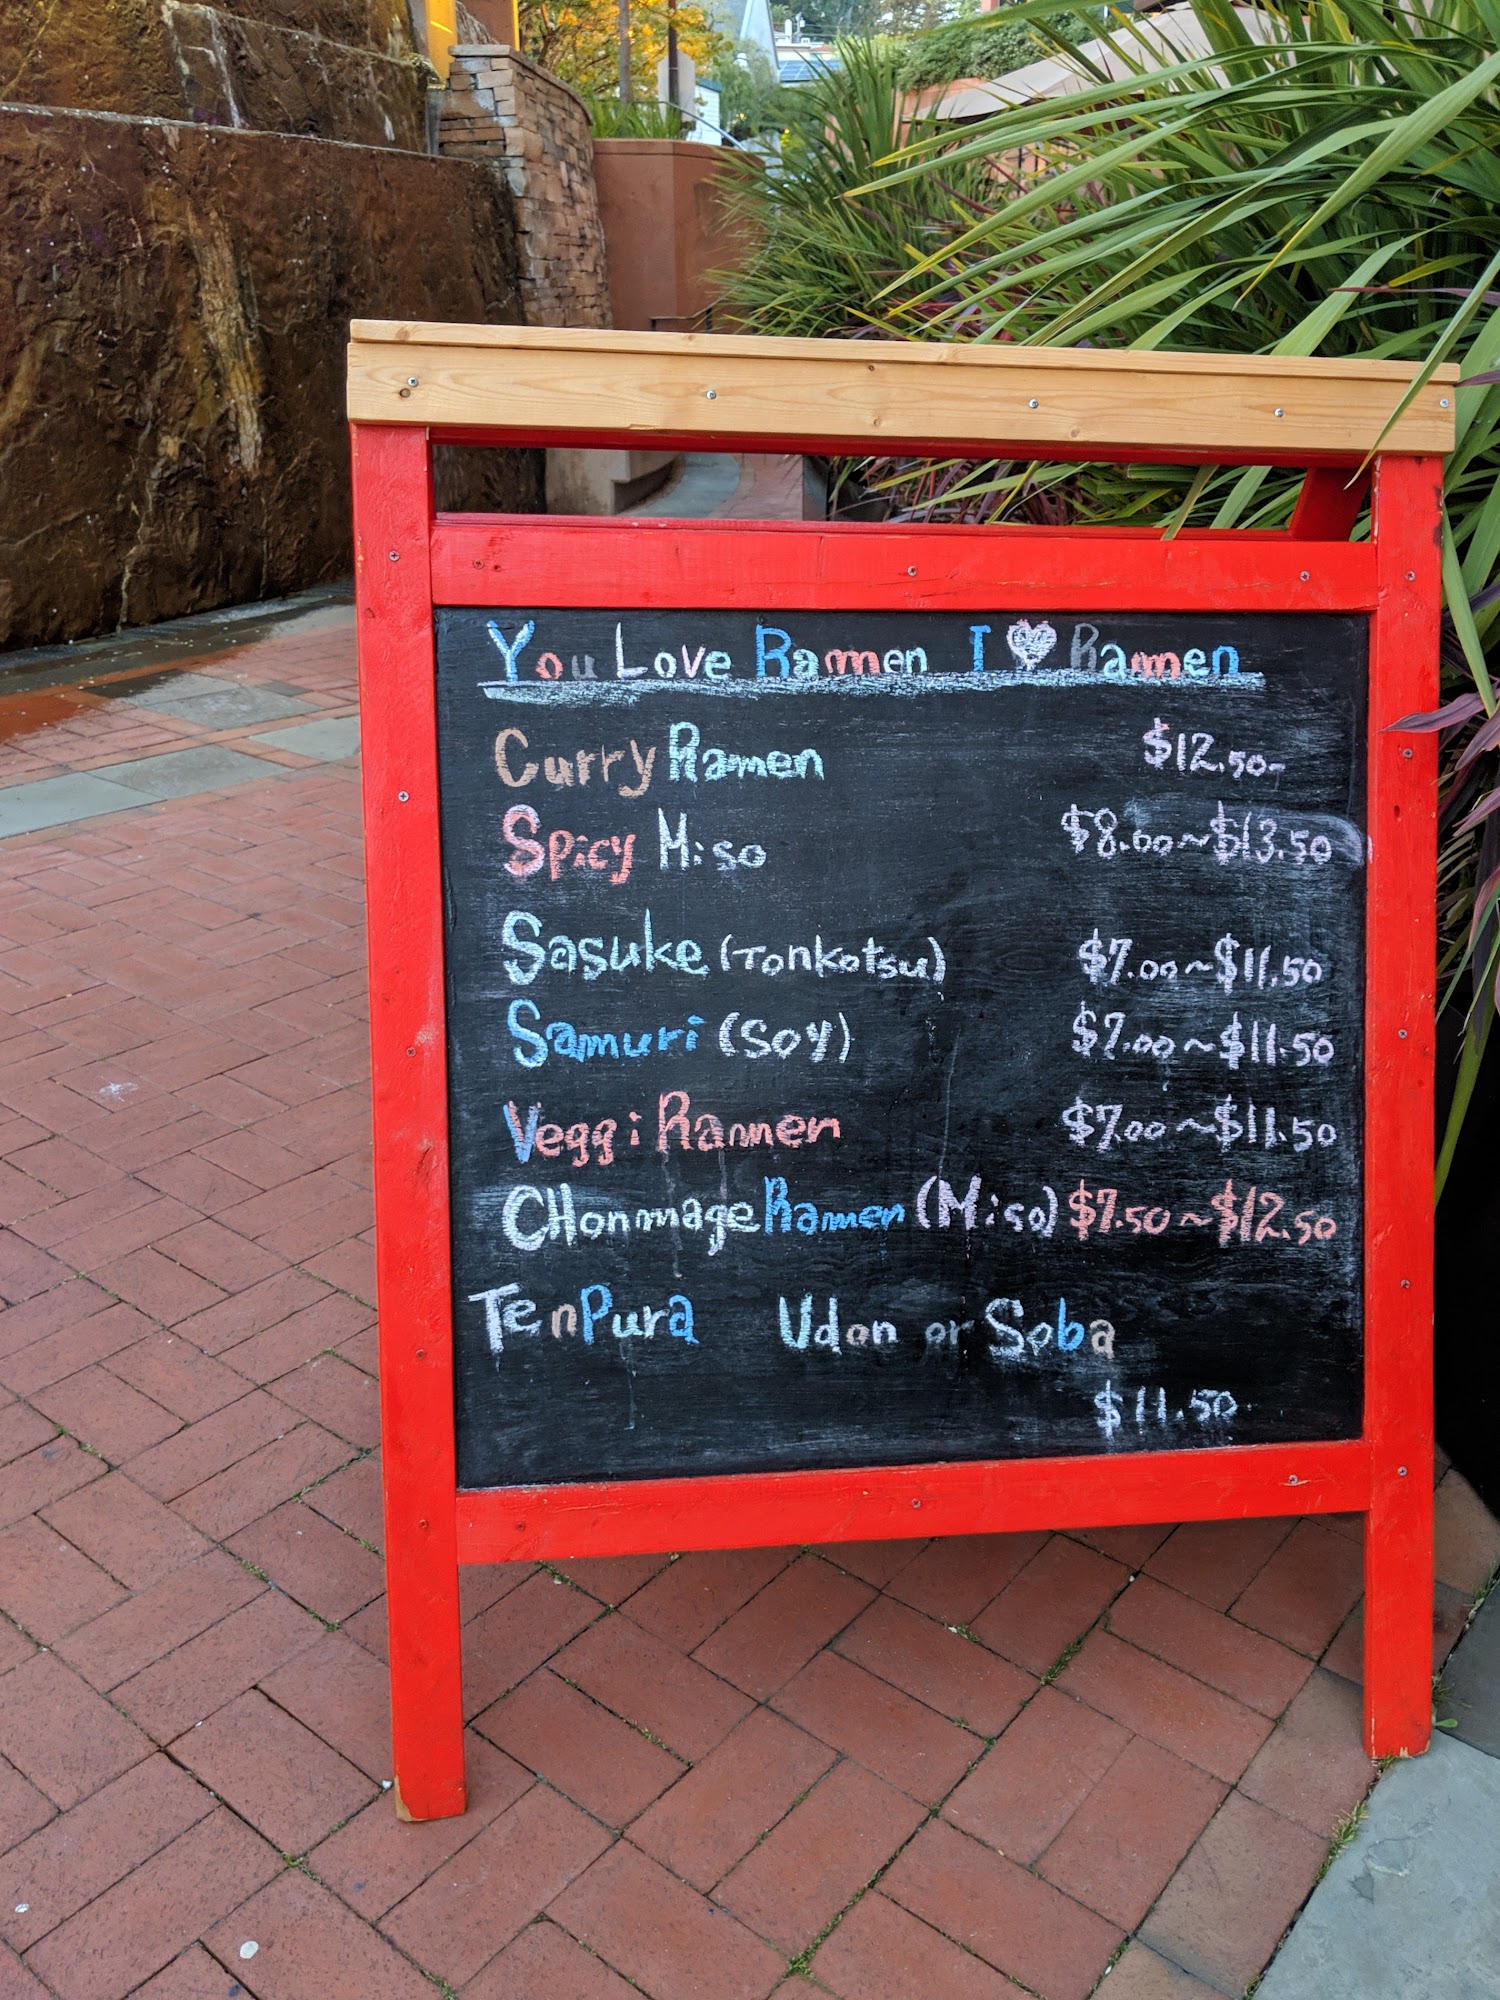 You Love Ramen I ♡ Ramen
Curry Ramen $12.50-
Spicy Miso $8.00~$13.50
Sasuke (Tonkotsu) $7.00~$11.50
Samuri (SOY) $7.00~$11.50
Veggi Ramen $7.00~$11.50
CHonmage Ramen (Miso) $7.50~$12.50
TenPura Udon or Soba
$11.50